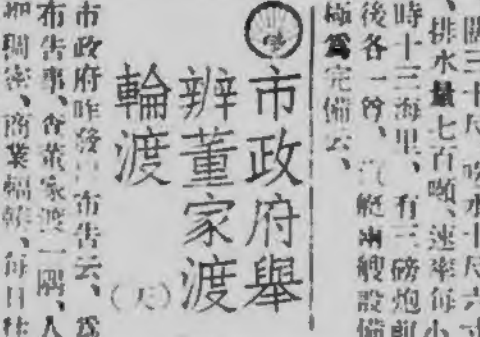 關三十尺、吃水十尺六寸
、排水量七百噸、速率每小
時十三海里、有三磅炮前
後各一尊、汽艇兩艘設備
極爲完備云、
市政府舉
辦董家渡
輪渡
（天）
市政府昨發 布告云、爲
布告事、查董家渡一隅、人
烟稠密、商業輻輳、每日往